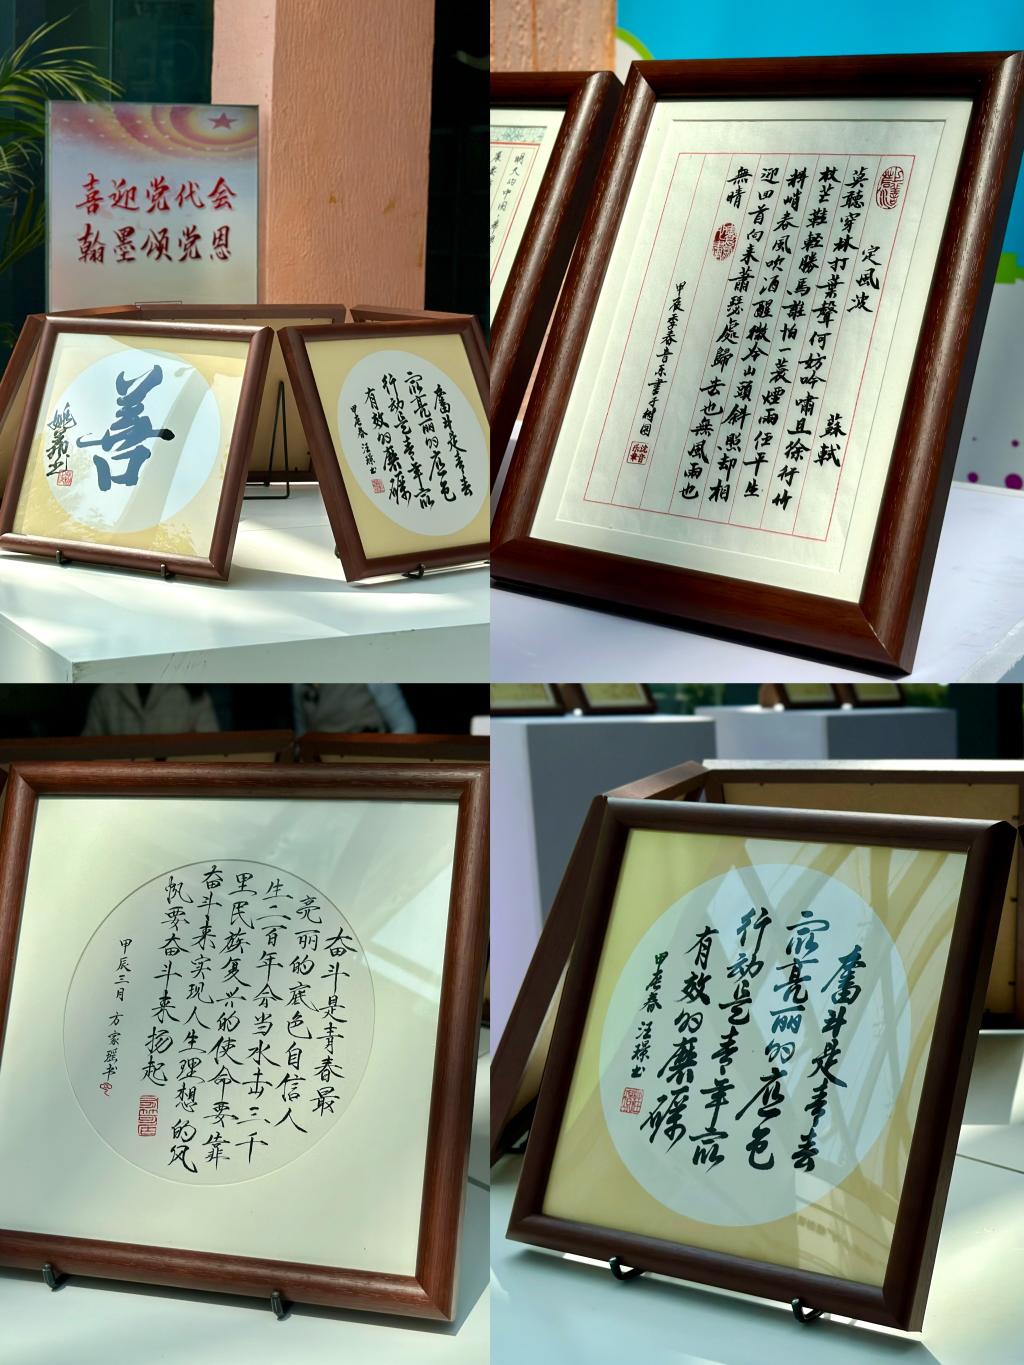 喜迎党代会
翰墨颂党恩
善
奮斗是青春
最亮丽的底色
行动是青年最
有效的磨礪
甲辰春 汪璟书
定風波 蘇軾
莫聽穿林打葉聲何妨吟嘯且徐行竹
杖芒鞋輕勝馬誰怕一蓑煙雨任平生
料峭春風吹酒醒微冷山頭斜照却相
迎回首向來蕭瑟處歸去也無風雨也
無晴
甲辰季春
奋斗是青春最
亮丽的底色自信人
生二百年会当水击三千
里民族复兴的使命要靠
奋斗来实现人生理想的风
帆要奋斗来扬起
甲辰三月 方家瑶书
奮斗是青春
最亮丽的底色
行动是青年最
有效的磨礪
甲辰春 汪璟书